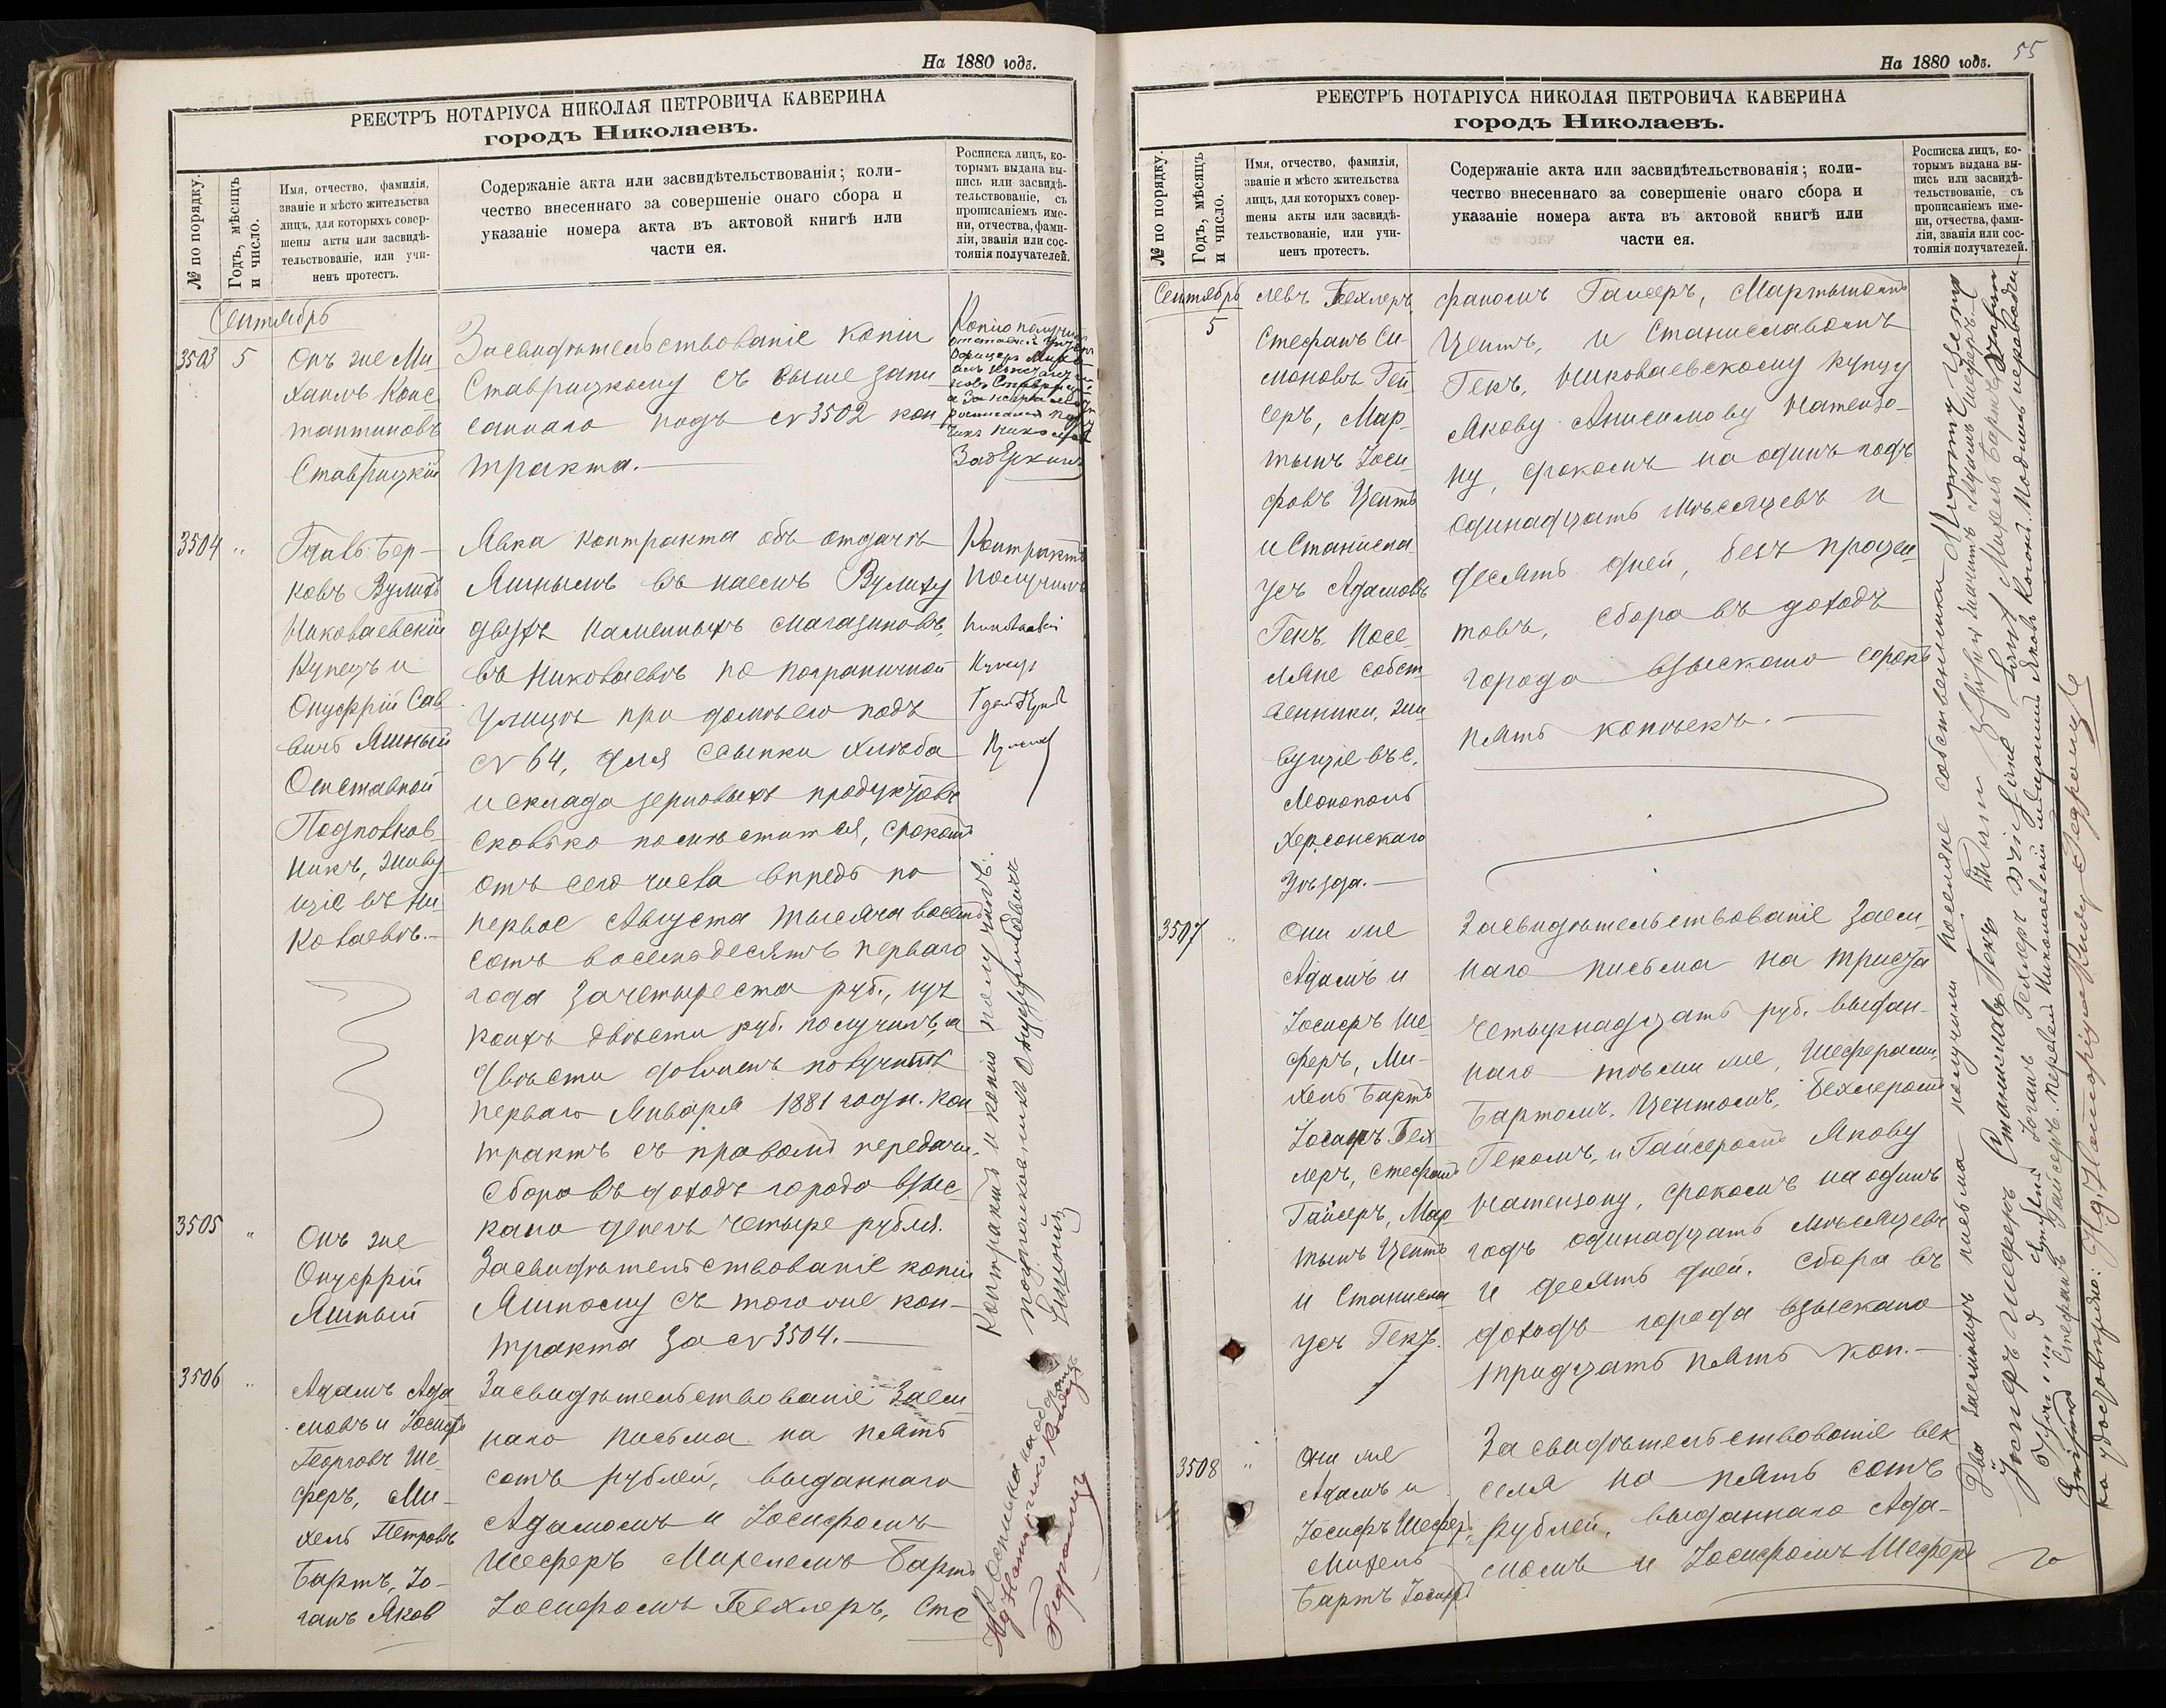 На 1880 годъ.
РЕЕСТРЪ НОТАРІУСА НИКОЛАЯ ПЕТРОВИЧА КАВЕРИНА
городъ Николаевъ.
№ по порядку.
Годъ, мѣсяцъ
и число.
Имя, отчество, фамилія,
званіе и мѣсто жительства
лицъ, для которыхъ совер-
шены акты или засвидѣ-
тельствованіе, или учи-
ненъ протестъ.
Содержаніе акта или засвидѣтельствованія; коли-
чество внесеннаго за совершеніе онаго сбора и
указаніе номера акта въ актовой книгѣ или
части ея.
Росписка лицъ, ко-
торымъ выдана вы-
пись или засвидѣ-
тельствованіе, съ
прописаніемъ име-
ни, отчества, фами-
ліи, званія или сос-
тоянія получателей.
Сентябрь
3503 5
Онъ же Ми-
хаилъ Конс
тантиновъ
Ставрицкій
Засвидѣтельствованіе копіи
Ставрицкому съ выше запи
саннаго подъ № 3502 кон
тракта.—
Копію получи
3504 "
Гдаль Бер-
ковъ Вулихъ
Николаевскій
Купецъ и
Онуфрій Сав
вичъ Яшный
Отставной
Подполков
никъ, живу
щіе въ Ни-
колаевѣ.—
Явка контракта объ отдачѣ
Яшнымъ въ наемъ Вулиху
двухъ каменныхъ магазиновъ,
въ Николаевѣ по пограничной
улицѣ при домѣ его подъ
№ 64, для ссыпки хлѣба
и склада зерновыхъ продуктовъ
сколько помѣстится, срокомъ
отъ сего числа впредь по
первое Августа тысяча восемь
сотъ восемьдесятъ перваго
года за четыреста руб., изъ
коихъ двѣсти руб. получилъ, а
двѣсти долженъ получить
перваго Января 1881 года. кон
трактъ съ правомъ передачи.
Сбора въ доходъ города взыс-
кано денегъ четыре рубля.
Контрактъ
получилъ
Николаевскій
Купецъ
3505 "
Онъ же
Онуфрій
Яшный
Засвидѣтельствованіе копіи
Яшному съ того же кон-
тракта за № 3504.—
Контрактъ и копію получилъ:
подполковникъ Онуфрій
3506 "
Адамъ Ада
мовъ и Іосифъ
Георговъ Ше-
феръ, Ми-
хель Петровъ
Бартъ, Іо-
ганъ Яков
Засвидѣтельствованіе Заем
наго письма на пять
сотъ рублей, выданнаго
Адамомъ и Іосифомъ
Шеферъ Михелемъ Бартъ
Іосифомъ Бехлеръ, Сте
На 1880 годъ.
55
РЕЕСТРЪ НОТАРІУСА НИКОЛАЯ ПЕТРОВИЧА КАВЕРИНА
городъ Николаевъ.
№ по порядку.
Годъ, мѣсяцъ
и число.
Имя, отчество, фамилія,
званіе и мѣсто жительства
лицъ, для которыхъ совер-
шены акты или засвидѣ-
тельствованіе, или учи-
ненъ протестъ.
Содержаніе акта или засвидѣтельствованія; коли-
чество внесеннаго за совершеніе онаго сбора и
указаніе номера акта въ актовой книгѣ или
части ея.
Росписка лицъ, ко-
торымъ выдана вы-
пись или засвидѣ-
тельствованіе, съ
прописаніемъ име-
ни, отчества, фами-
ліи, званія или сос-
тоянія получателей.
Сентябрь
5
левъ Бехлеръ,
Стефанъ Си-
моновъ Гей
серъ, Мар-
тынъ Іоси-
фовъ Центъ
и Станисла
усъ Адамовъ
Гекъ. Посе
ляне собст
венники, жи
вущіе въ с.
Монополь
Херсонскаго
Уѣзда.—
фаномъ Гайсеръ, Мартыномъ
Центъ, и Станиславомъ
Гекъ, Николаевскому купцу
Якову Анисимову Натензо-
ну, срокомъ на одинъ годъ
одинадцать мѣсяцевъ и
десять дней, безъ процен
товъ, сбора въ доходъ
города взыскано сорокъ
пять копѣекъ.—
3507 "
Они же
Адамъ и
Іосифъ Ше
феръ, Ми-
хель Бартъ
Іосифъ Бех
леръ, Стефанъ
Гайсеръ, Мар
тынъ Центъ
и Станисла
усъ Гекъ.
Засвидѣтельствованіе Заем
наго письма на триста
четырнадцать руб. выдан-
наго тѣми же, Шеферами,
Бартомъ, Центомъ, Бехлеромъ
Гекомъ, и Гайсеромъ Якову
Натензону, срокомъ на одинъ
годъ одинадцать мѣсяцевъ
и десять дней. Сбора въ
доходъ города взыскано
тридцать пять коп.—
3508 "
Они же
Адамъ и
Іосифъ Шеферъ,
Михель
Бартъ Іосифъ
Засвидѣтельствованіе век
селя на пять сотъ
рублей, выданнаго Ада-
момъ и Іосифомъ Шеферъ
Два заемныхъ письма получили поселяне собственники Мартинъ Центъ